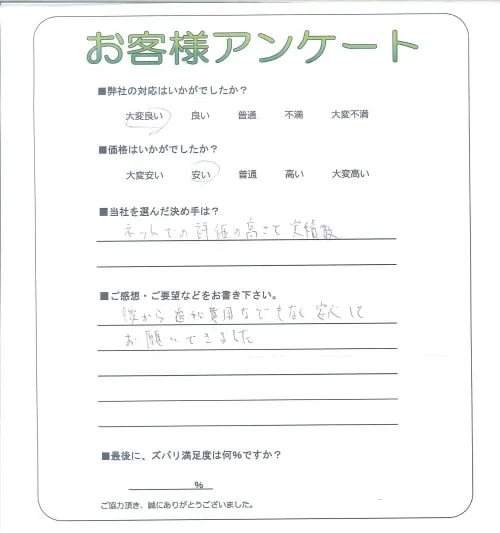 お客様アンケート
■弊社の対応はいかがでしたか？
大変良い 良い 普通 不満 大変不満
■価格はいかがでしたか？
大変安い 安い 普通 高い 大変高い
■当社を選んだ決め手は？
ネットでの評価の高さと実績数
■ご感想・ご要望などをお書き下さい。
後から追加費用などもなく安心して
お願いできました
■最後に、ズバリ満足度は何％ですか？
％
ご協力頂き、誠にありがとうございました。